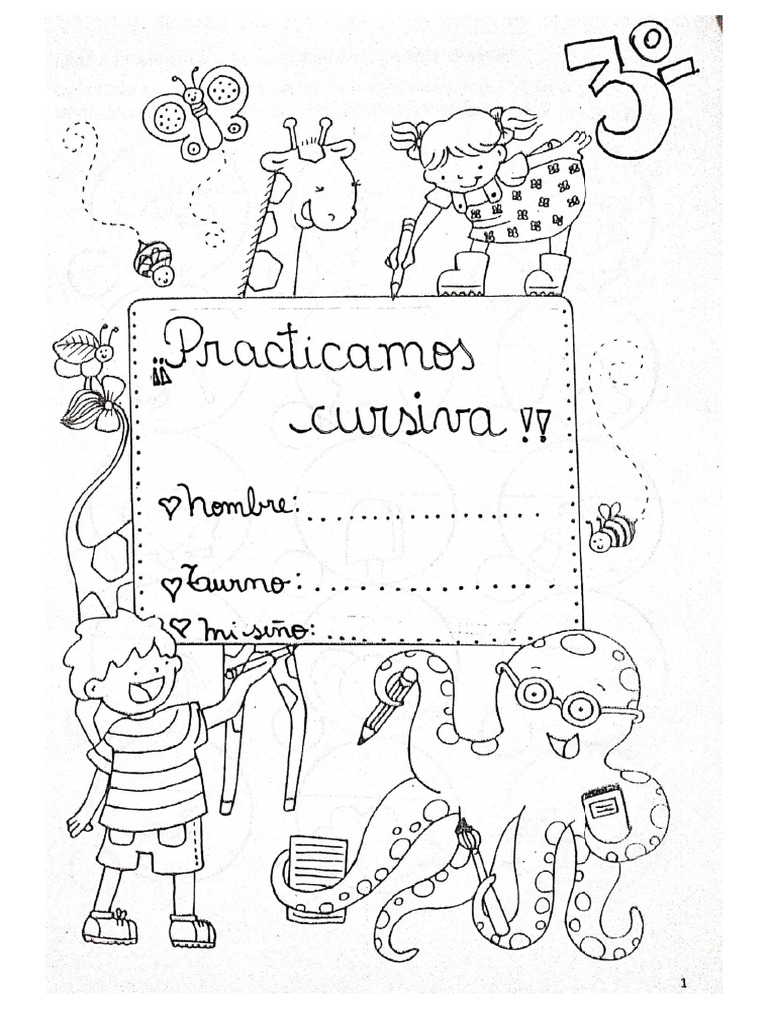 3º
¡¡Practicamos
cursiva!!
♡ Nombre:..................
♡ Turno:..................
♡ Mi seño:..................
1